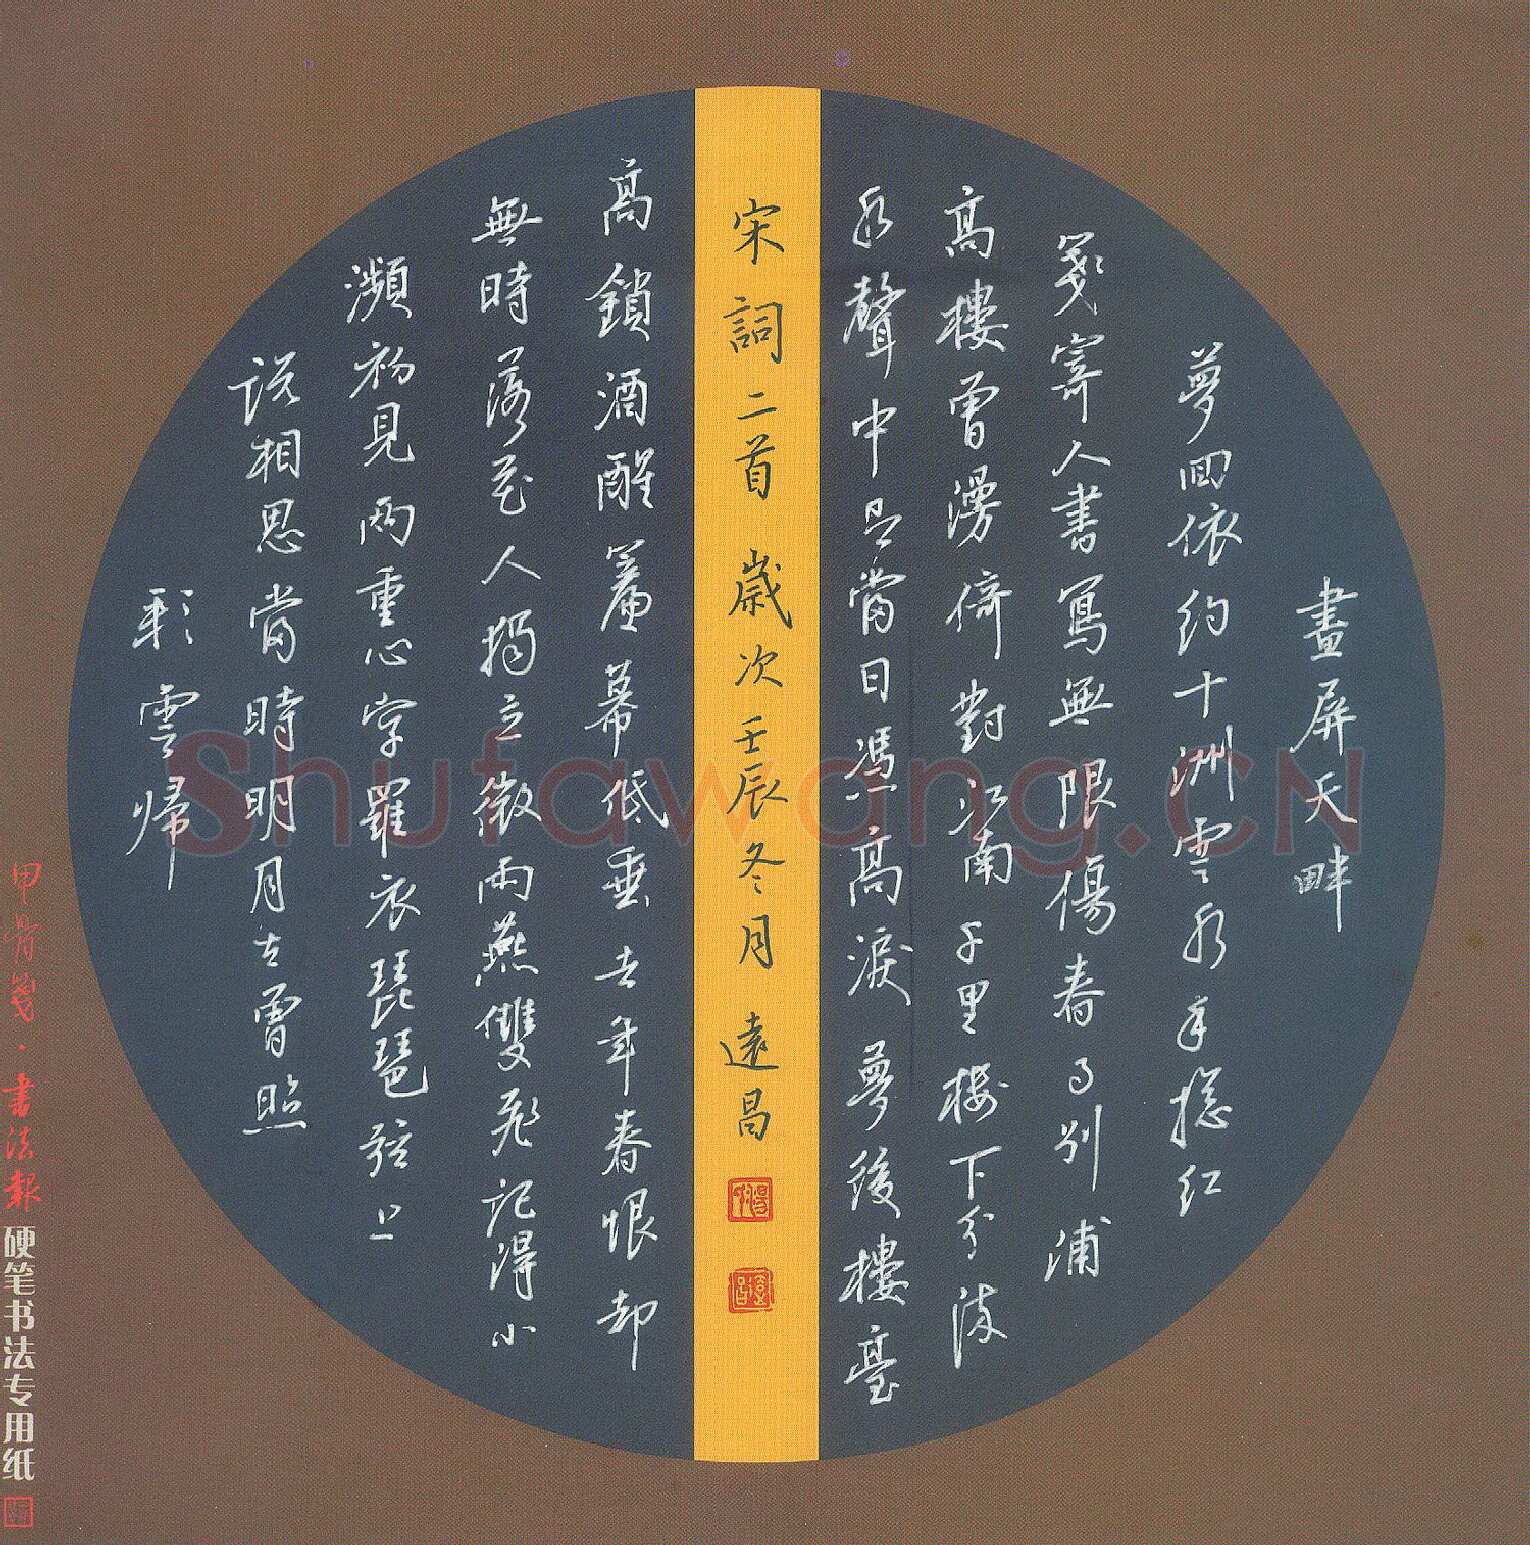 畫屏天畔
夢回依約十洲雲水手撚紅
箋寄人書寫無限傷春事別浦
高樓曾漫倚對江南千里樓下分流
水聲中有當日憑高淚夢後樓臺
宋詞二首 歲次壬辰冬月 遠昌
高鎖酒醒簾幕低垂去年春恨却
來時落花人獨立微雨燕雙飛記得小
蘋初見兩重心字羅衣琵琶弦上
說相思當時明月在曾照
彩雲歸
甲骨箋·書法報
硬笔书法专用纸
Shufawang.CN